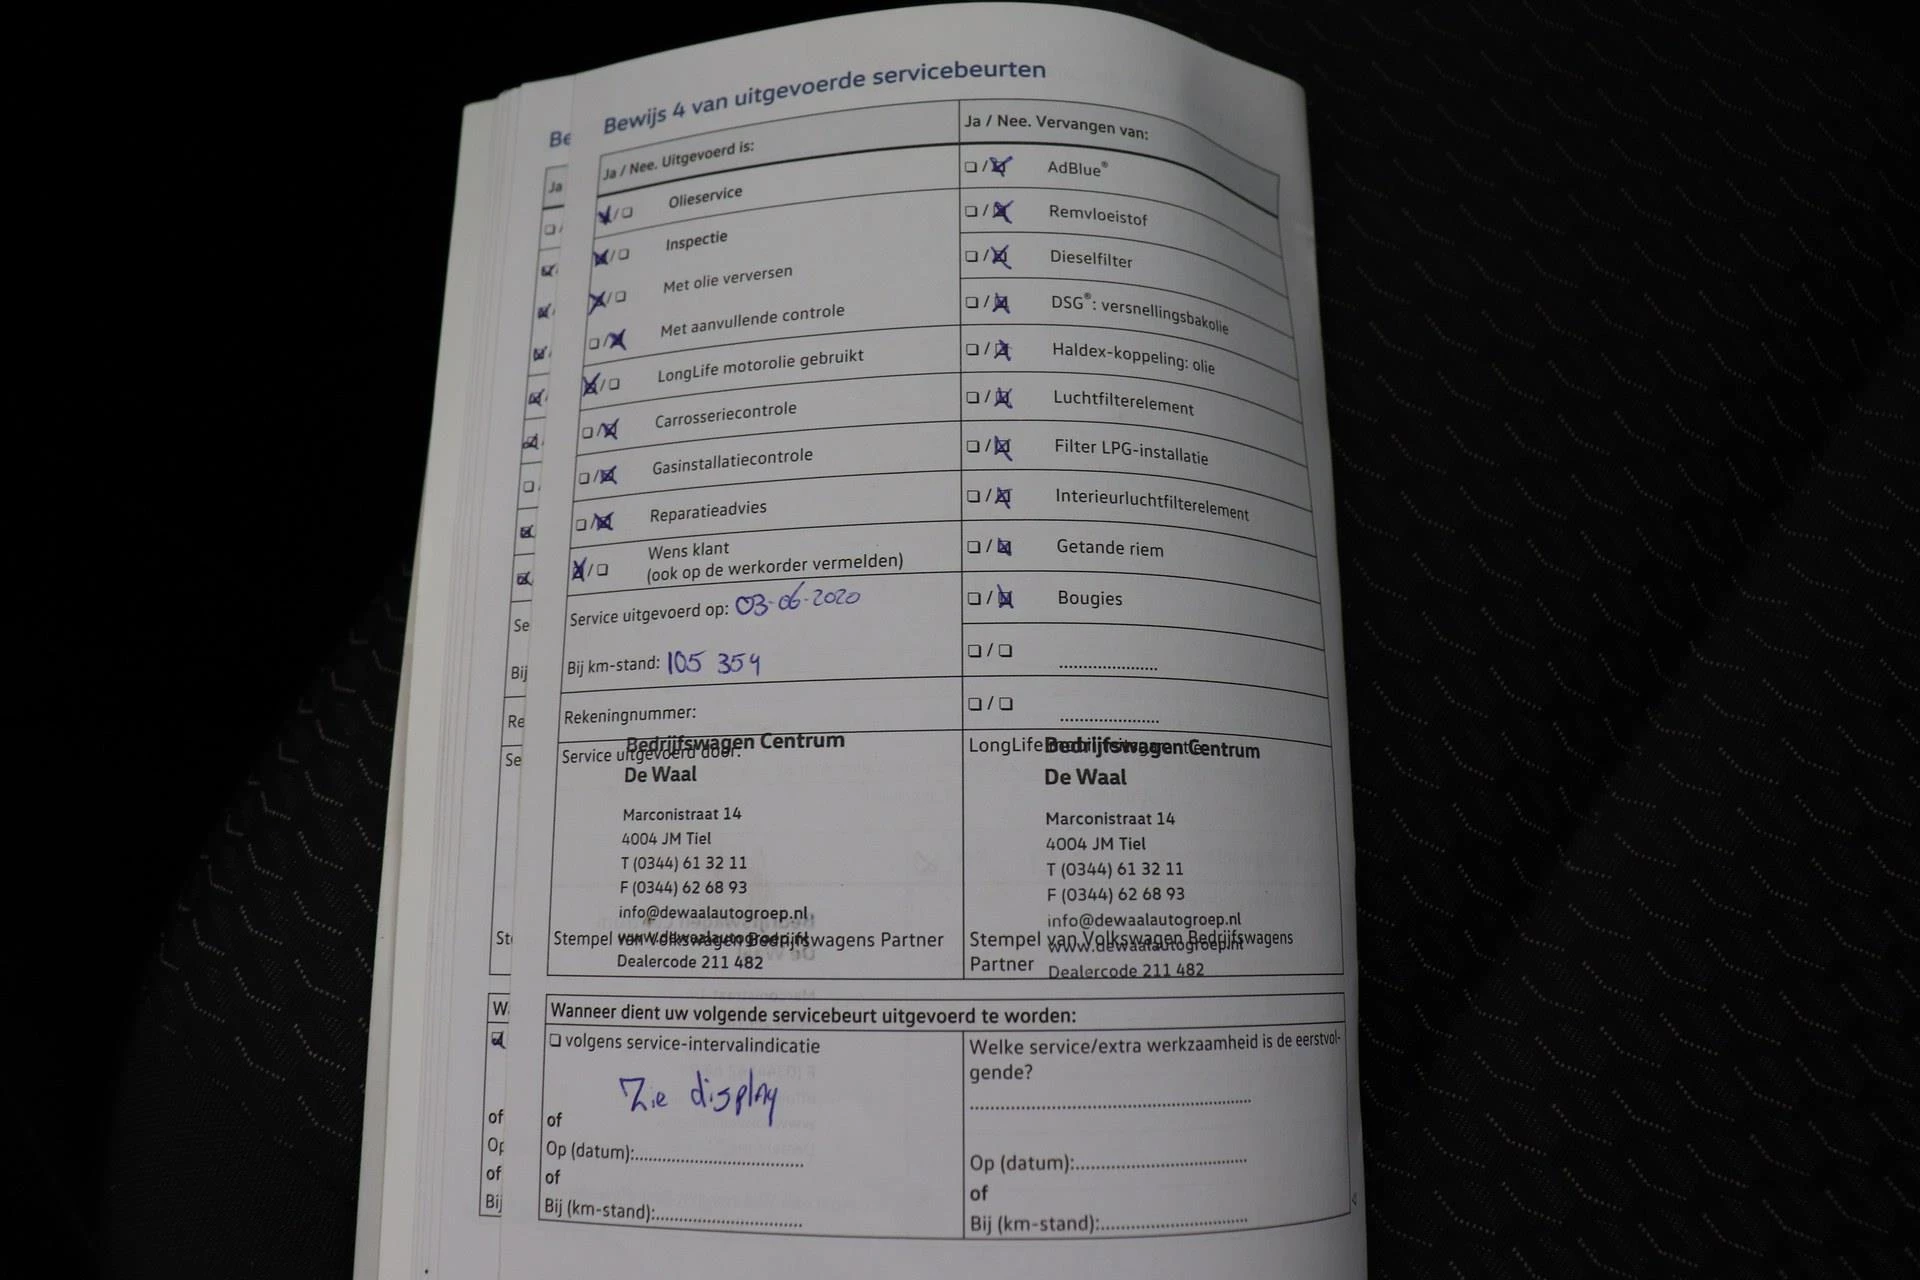 Bewijs 4 van uitgevoerde servicebeurten
Ja / Nee. Uitgevoerd is:
Olieservice
Inspectie
Met olie verversen
Met aanvullende controle
LongLife motorolie gebruikt
Carrosseriecontrole
Gasinstallatiecontrole
Reparatieadvies
Wens klant
(ook op de werkorder vermelden)
Service uitgevoerd op: 03-06-2020
Bij km-stand: 105 354
Rekeningnummer:
Service uitgevoerd door:
Bedrijfswagen Centrum
De Waal
Marconistraat 14
4004 JM Tiel
T (0344) 61 32 11
F (0344) 62 68 93
info@dewaalautogroep.nl
www.dewaalautogroep.nl
Stempel van Volkswagen Bedrijfswagens Partner
Dealercode 211 482
Ja / Nee. Vervangen van:
AdBlue®
Remvloeistof
Dieselfilter
DSG®: versnellingsbakolie
Haldex-koppeling: olie
Luchtfilterelement
Filter LPG-installatie
Interieurluchtfilterelement
Getande riem
Bougies
LongLife
Bedrijfswagen Centrum
De Waal
Marconistraat 14
4004 JM Tiel
T (0344) 61 32 11
F (0344) 62 68 93
info@dewaalautogroep.nl
Stempel van Volkswagen Bedrijfswagens
www.dewaalautogroep.nl
Partner
Dealercode 211 482
Wanneer dient uw volgende servicebeurt uitgevoerd te worden:
volgens service-intervalindicatie
Zie display
of
Op (datum):
of
Bij (km-stand):
Welke service/extra werkzaamheid is de eerstvol-
gende?
Op (datum):
of
Bij (km-stand):
Be
Ja
Se
Bij
Re
Se
of
Op
of
Bij